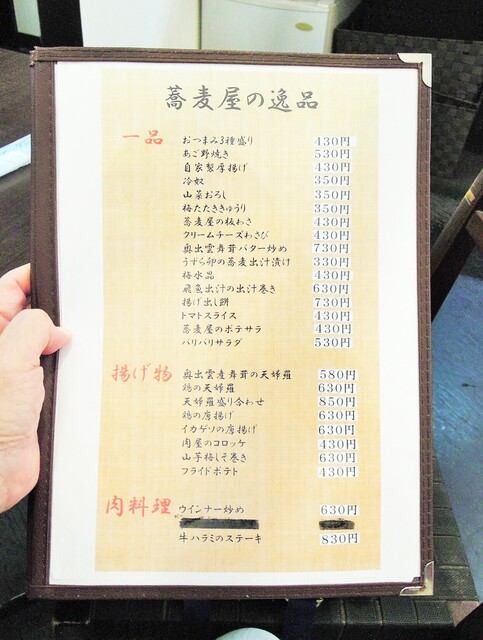 蕎麦屋の逸品
一品
おつまみ3種盛り 430円
あご野焼き 530円
自家製厚揚げ 430円
冷奴 350円
山菜おろし 350円
梅たたききゅうり 350円
蕎麦屋の板わさ 430円
クリームチーズわさび 430円
奥出雲舞茸バター炒め 730円
うずら卵の蕎麦出汁漬け 330円
梅水晶 430円
飛魚出汁の出汁巻き 630円
揚げ出し餅 730円
トマトスライス 430円
蕎麦屋のポテサラ 430円
パリパリサラダ 530円
揚げ物
奥出雲産舞茸の天婦羅 580円
鶏の天婦羅 630円
天婦羅盛り合わせ 850円
鶏の唐揚げ 630円
イカゲソの唐揚げ 630円
肉屋のコロッケ 430円
山芋梅しそ巻き 630円
フライドポテト 430円
肉料理
ウインナー炒め 630円
牛ハラミのステーキ 830円